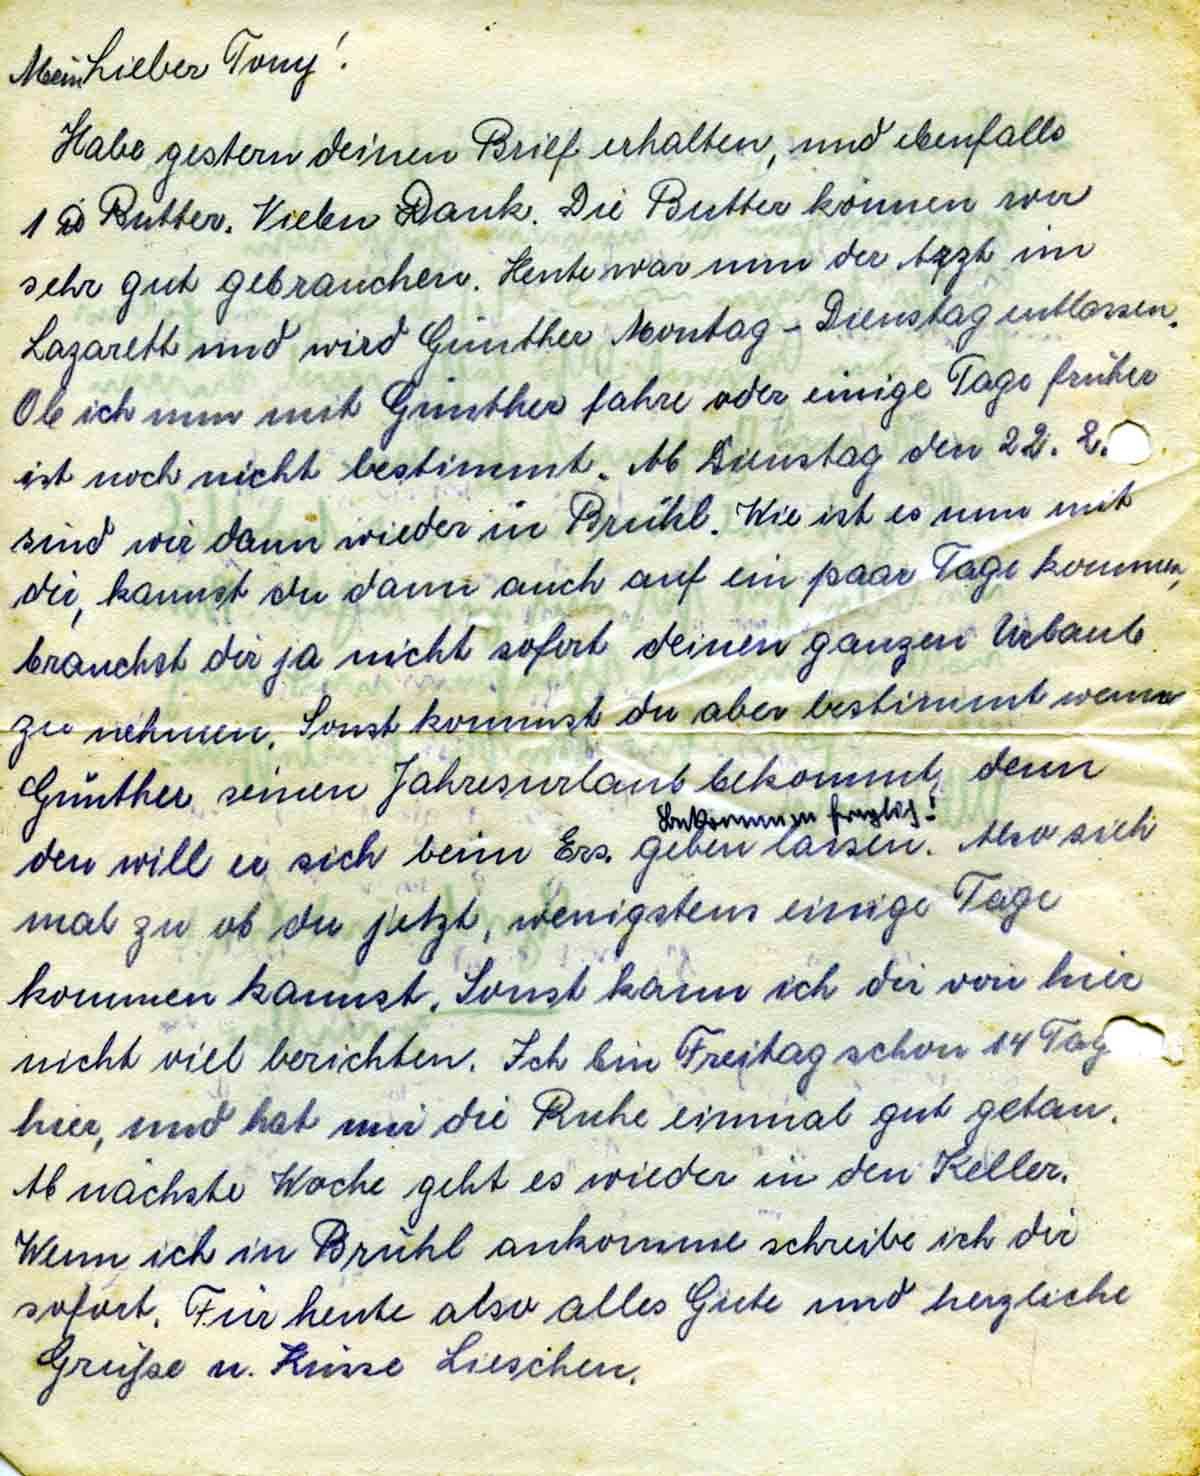 Mein Lieber Tony!
Habe gestern deinen Brief erhalten, und ebenfalls
1 ℔ Butter. Vielen Dank. Die Butter können wir
sehr gut gebrauchen. Heute war nun der Arzt im
Lazarett und wird Günther Montag - Dienstag entlassen.
Ob ich nun mit Günther fahre oder einige Tage früher
ist noch nicht bestimmt. Ab Dienstag den 22. 2.
sind wir dann wieder in Brühl. Wie ist es nun mit
dir, kannst du dann auch auf ein paar Tage kommen,
brauchst dir ja nicht sofort deinen ganzen Urlaub
zu nehmen. Sonst kommst du aber bestimmt wenn
Günther seinen Jahresurlaub bekommt, denn
bekommen fraglich!
den will er sich beim Ers. geben lassen. Also sieh
mal zu ob du jetzt, wenigstens einige Tage
kommen kannst. Sonst kann ich dir von hier
nicht viel berichten. Ich bin Freitag schon 14 Tag
hier, und hat mir die Ruhe einmal gut getan.
Ab nächste Woche geht es wieder in den Keller.
Wenn ich in Brühl ankomme schreibe ich dir
sofort. Für heute also alles Gute und herzliche
Grüße u. Küsse Lieschen.